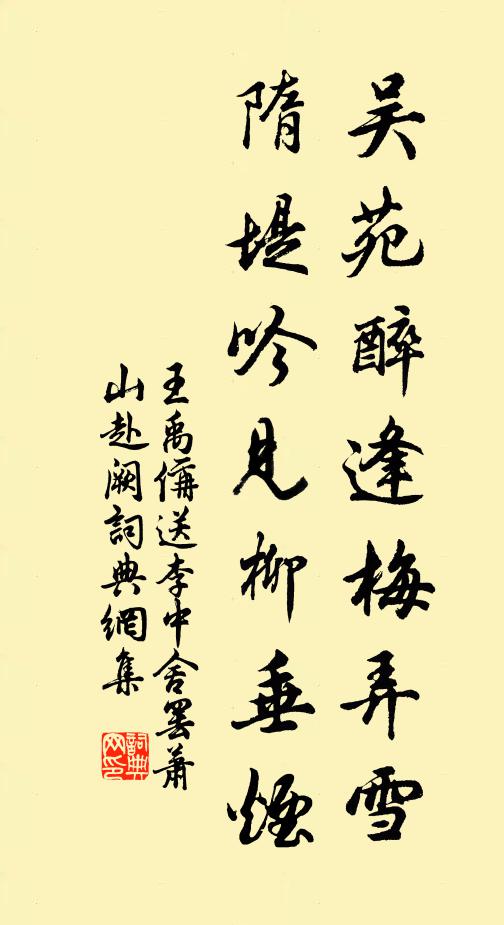 吴苑醉逢梅弄雪
隋堤吟見柳垂煙
王禹偁送李中舍罢萧
山赴阙詞典網集
詞典
网印